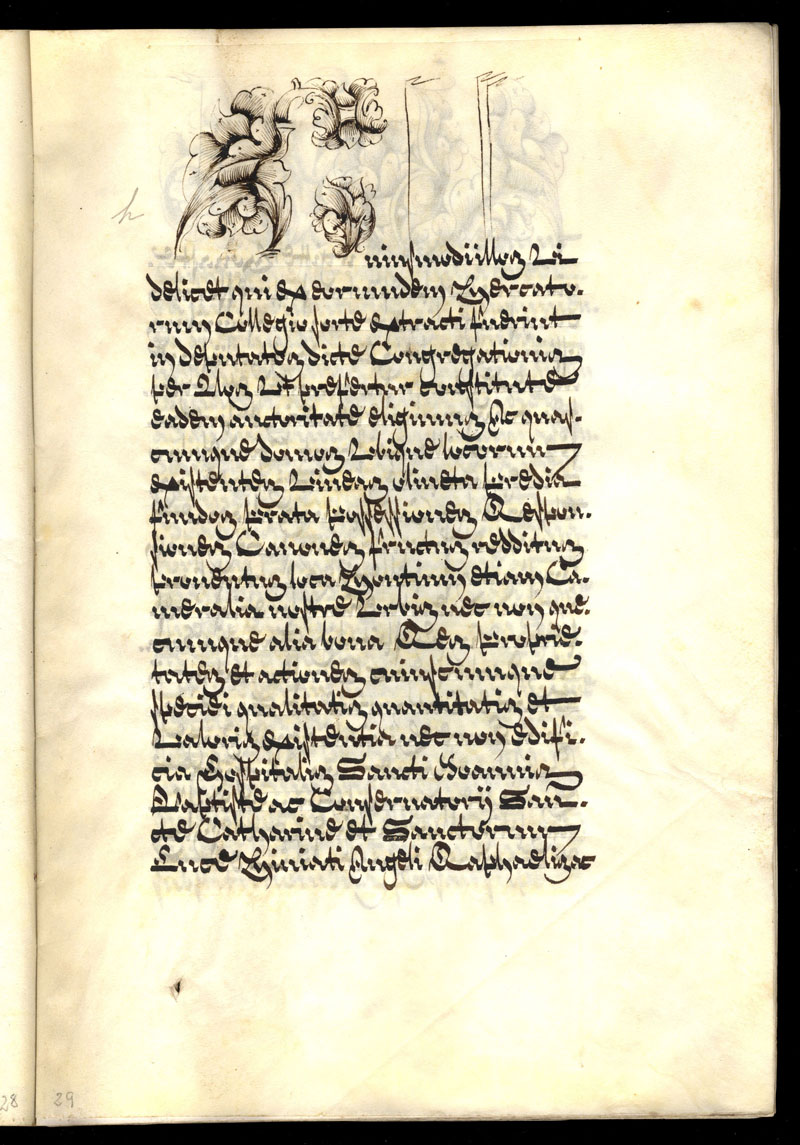 h
uiusmodi illos Vi
delicet qui ex eorumdem Mercato-
rum Collegio sorte extracti fuerint
in deputatos dicte Congregationis
per Nos Ut prefertur constitute
eadem auctoritate eligimus Ac quas-
cunque domos Ubique locorum
existentes Vineas oliueta predia
fundos prata possessiones Respon-
siones Canones fructus redditus
prouentus loca Montium etiam Ca-
meralia nostre Urbis nec non que-
cunque alia bona Res proprie-
tates et actiones cuiuscunque
speciei qualitatis quantitatis et
Valoris existentia nec non edifi-
cia Hospitalis Sancti Joannis
Baptiste ac Conseruatorii San-
cte Catharine et Sanctorum
Luce Miniati Angeli Raphaelis ac
28
29